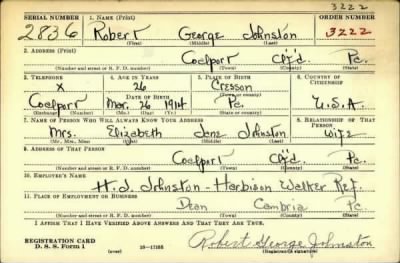 3222
SERIAL NUMBER 1. NAME (Print) ORDER NUMBER
2836 Robert George Johnston 3222
(First) (Middle) (Last)
2. ADDRESS (Print)
Coalport Clf'd. Pa.
(Number and street or R. F. D. number) (Town) (County) (State)
3. TELEPHONE 4. AGE IN YEARS 5. PLACE OF BIRTH 6. COUNTRY OF CITIZENSHIP
X 26 Cresson
DATE OF BIRTH (Town or county)
Coalport Mar. 26 1914 Pa. U.S.A.
(Exchange) (Number) (Mo.) (Day) (Yr.) (State or country)
7. NAME OF PERSON WHO WILL ALWAYS KNOW YOUR ADDRESS 8. RELATIONSHIP OF THAT PERSON
Mrs. Elizabeth Jane Johnston wife
(Mr., Mrs., Miss) (First) (Middle) (Last)
9. ADDRESS OF THAT PERSON
Coalport Clf'd. Pa.
(Number and street or R. F. D. number) (Town) (County) (State)
10. EMPLOYER'S NAME
H.J. Johnston - Harbison Walker Ref.
11. PLACE OF EMPLOYMENT OR BUSINESS
Dean Cambria Pa.
(Number and street or R. F. D. number) (Town) (County) (State)
I AFFIRM THAT I HAVE VERIFIED ABOVE ANSWERS AND THAT THEY ARE TRUE.
REGISTRATION CARD
D. S. S. Form 1 (over) 16-17105 Robert George Johnston
(Registrant's signature)